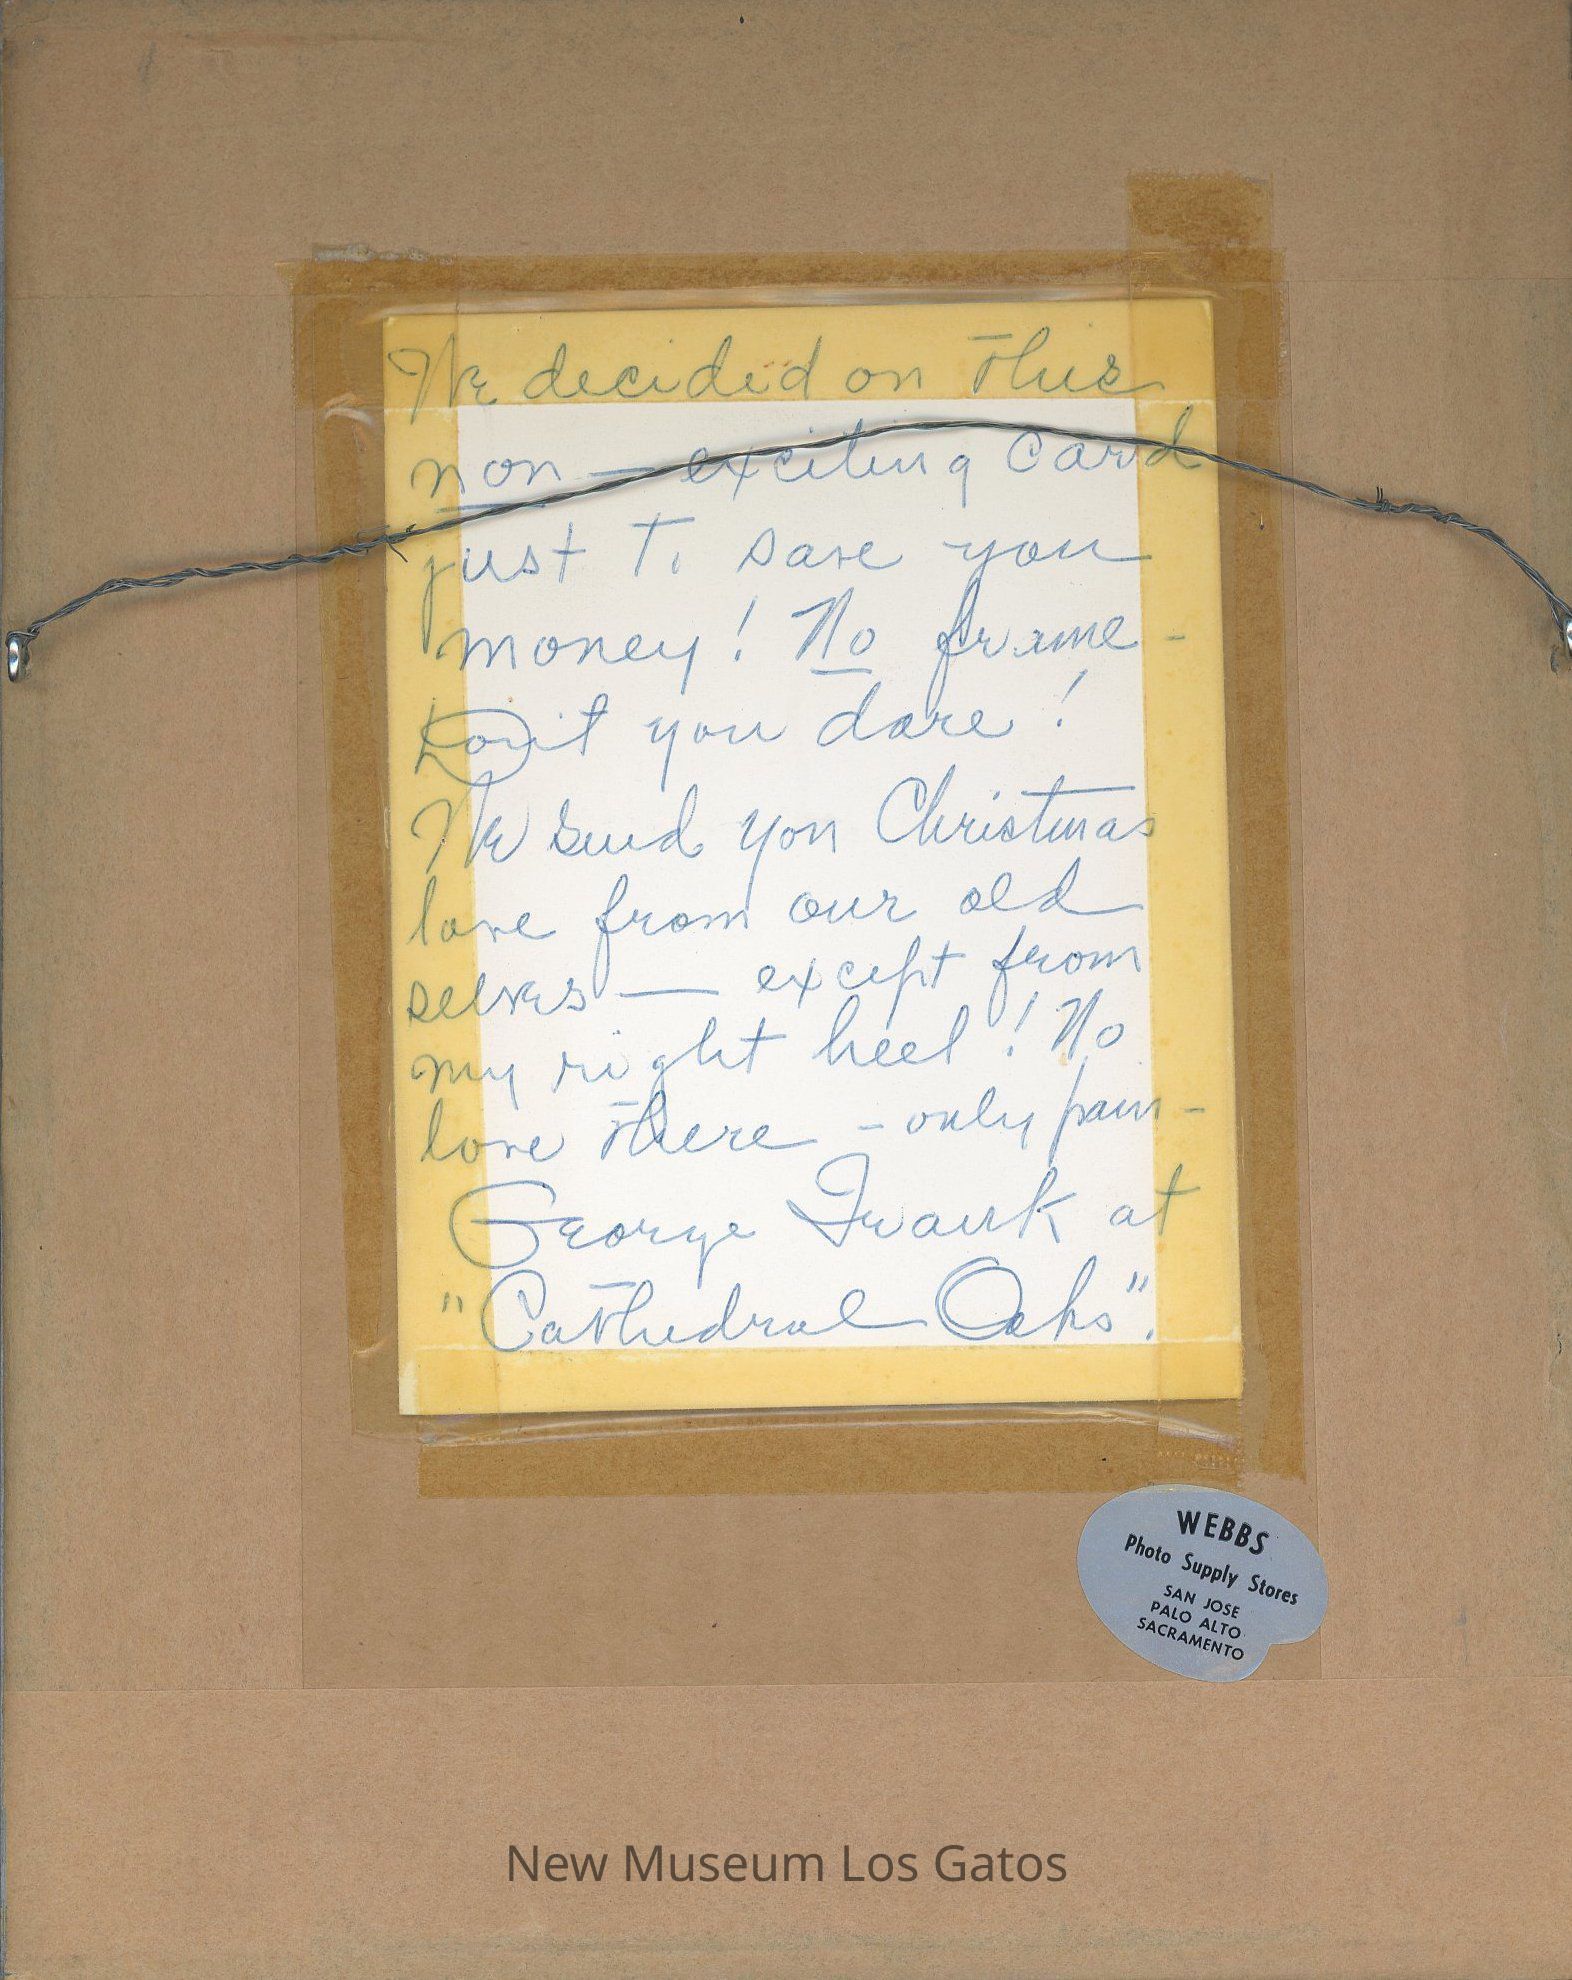 We decided on this
non — exciting card
just to save you
money! No frame -
Don't you dare!
We send you Christmas
love from our old
selves — except from
my right heel! No
love there - only pain -
George Frank at
"Cathedral Oaks".
WEBBS
Photo Supply Stores
SAN JOSE
PALO ALTO
SACRAMENTO
New Museum Los Gatos